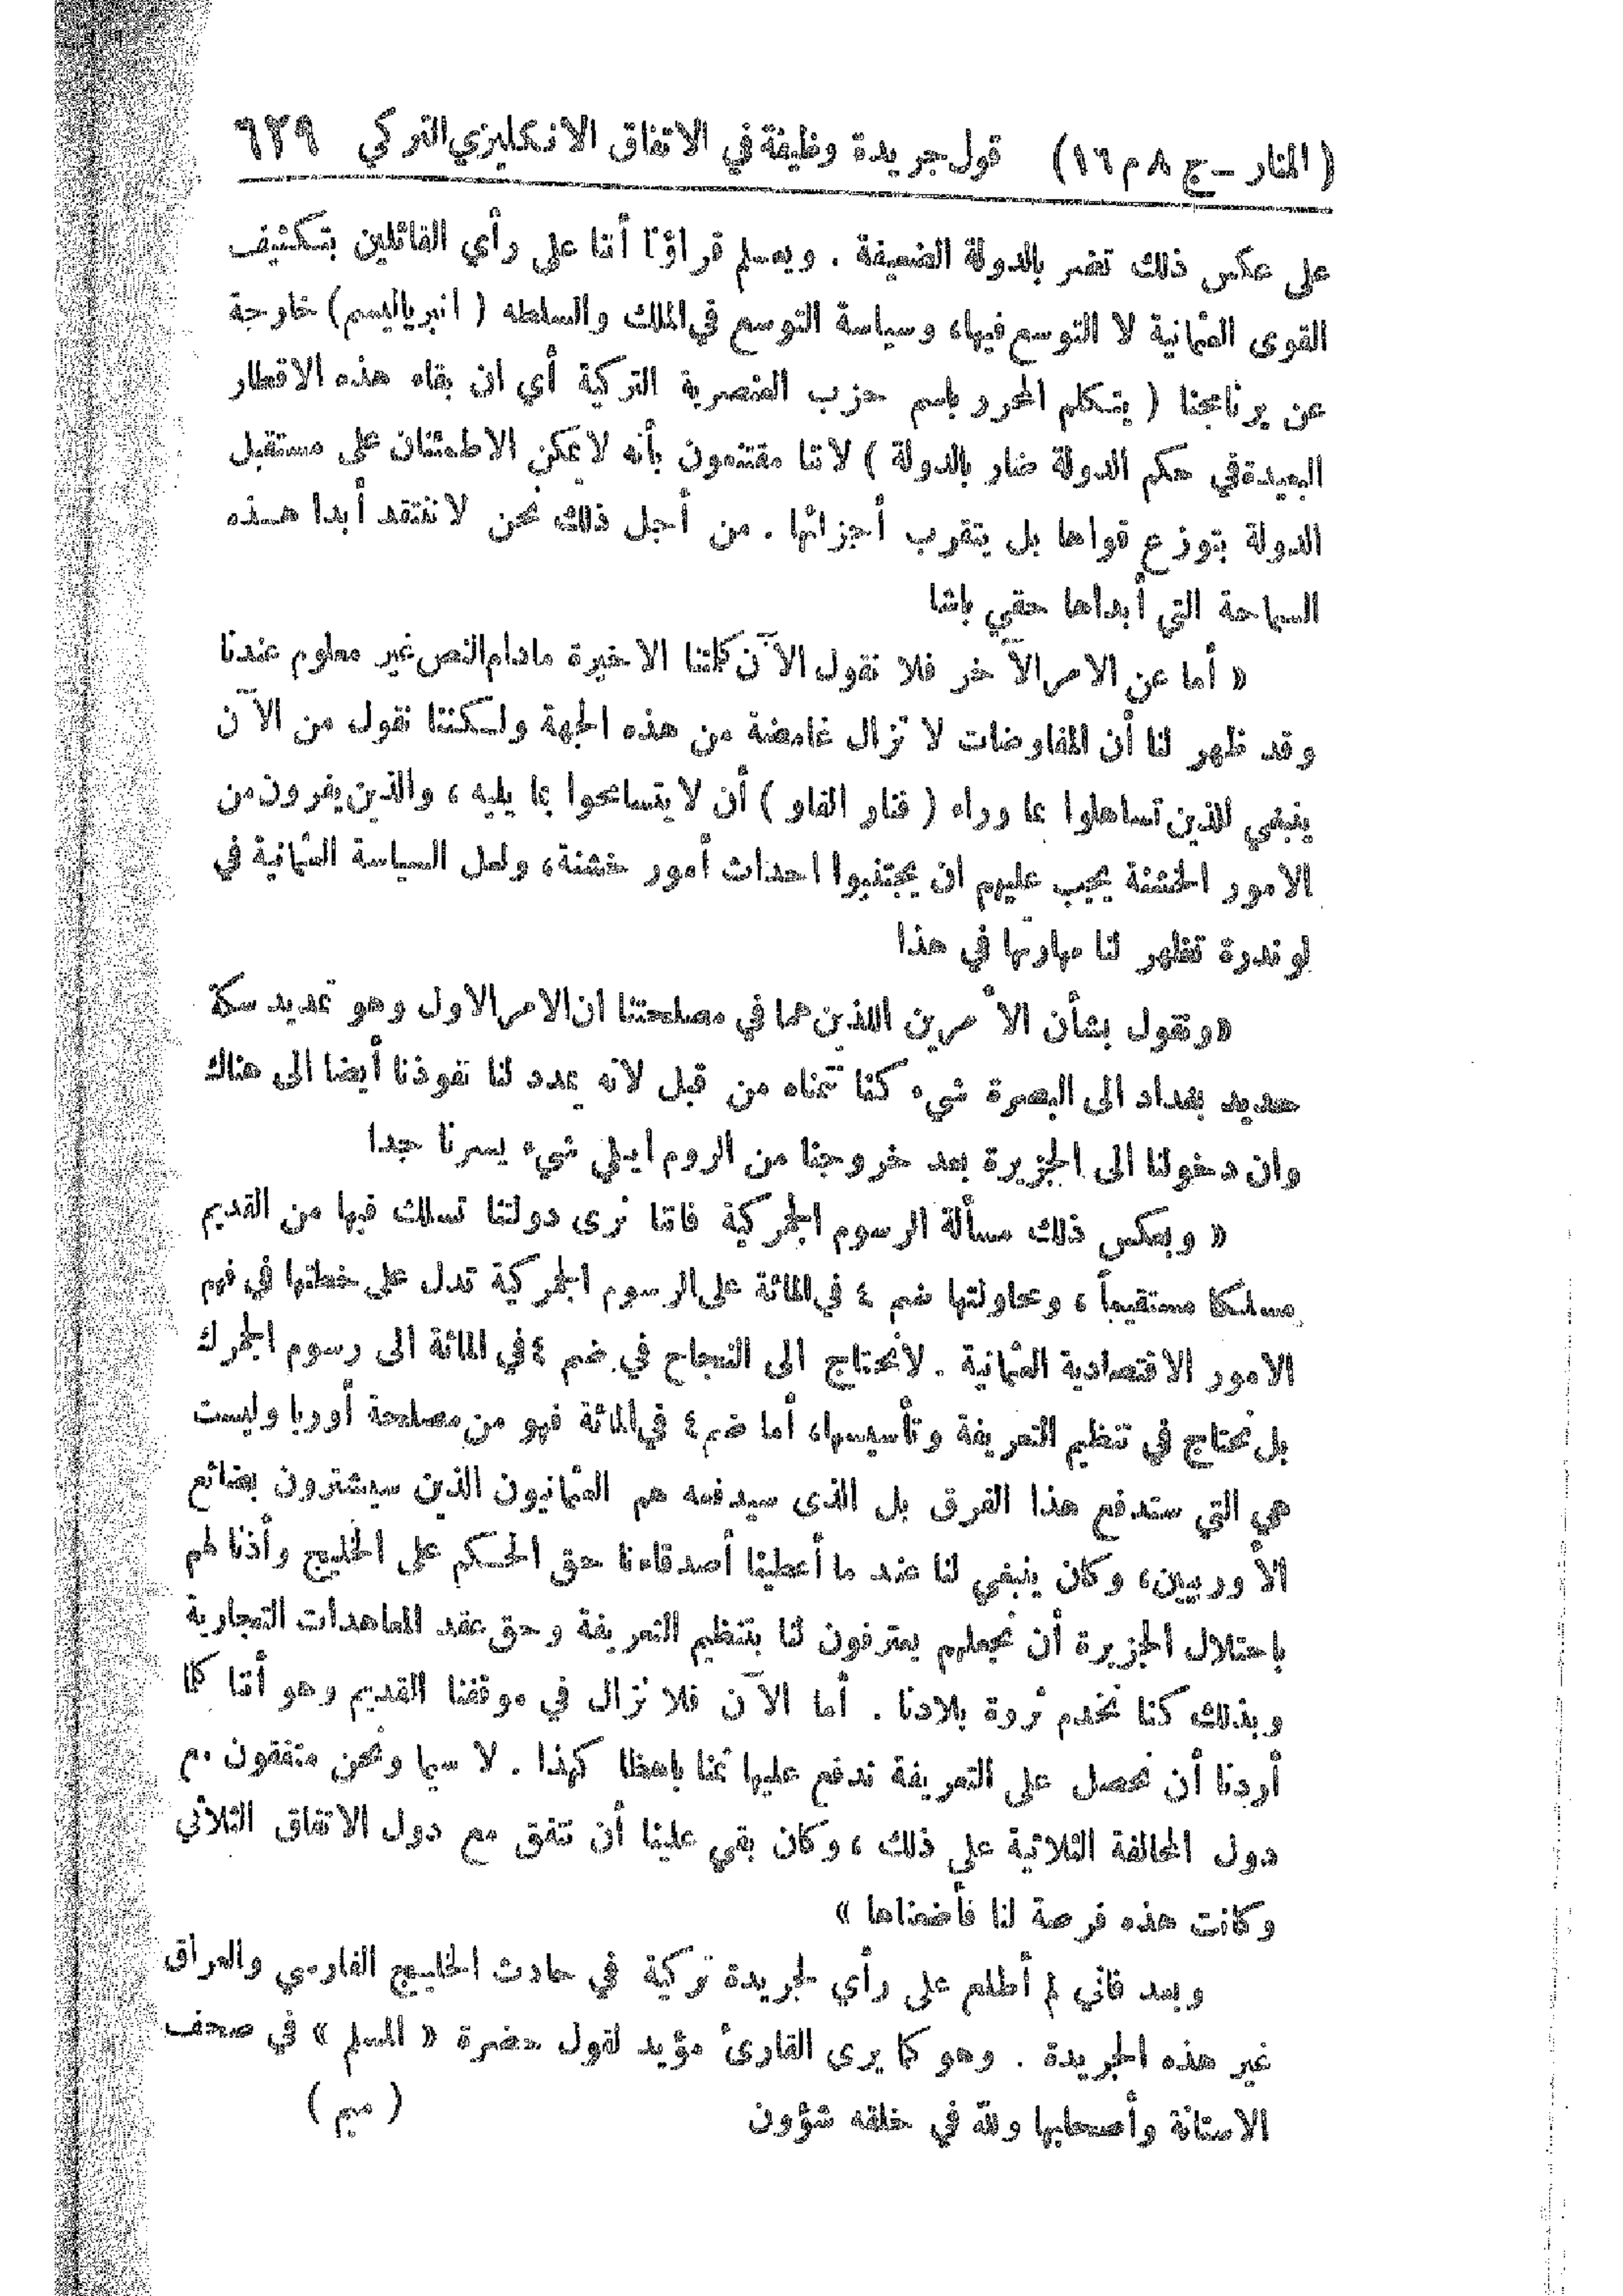 (المنار ــ ج ٨ م ١٦) قول جريدة وظيفة في الاتفاق الانكليزي التركي ٦٢٩
على عكس ذلك تضر بالدولة الضعيفة . ويعلم قراؤنا أننا على رأي القائلين بتكثيف
القوى العثمانية لا التوسع فيها، وسياسة التوسع في الملك والسلطه ( انبرياليسم) خارجة
عن برنامجنا ( يتكلم المحرر باسم حزب العنصرية التركية أي ان بقاء هذه الاقطار
البعيدة في حكم الدولة ضار بالدولة ) لاننا مقتنعون بأنه لا يمكن الاطمئنان على مستقبل
الدولة بتوزع قواها بل بتقرب أجزائها . من أجل ذلك نحن لا ننتقد أبدا هذه
السماحة التي أبداها حقي باشا
« أما عن الامر الآخر فلا نقول الآن كلمتنا الاخيرة مادام النص غير معلوم عندنا
وقد ظهر لنا أن المفاوضات لا تزال غامضة من هذه الجهة ولكننا نقول من الآن
ينبغي للذين تساهلوا بما وراء ( فنار الفاو ) أن لا يتسامحوا بما يليه ، والذين يفرون من
الامور الخشنة يجب عليهم ان يجتنبوا احداث أمور خشنة، ولعل السياسة العثمانية في
لوندرة تظهر لنا مهارتها في هذا
«ونقول بشأن الأمرين اللذين هما في مصلحتنا ان الامر الاول وهو تمديد سكة
حديد بغداد الى البصرة شيء كنا نتمناه من قبل لانه يمدد لنا نفوذنا أيضا الى هناك
وان دخولنا الى الجزيرة بعد خروجنا من الروم ايلي شيء يسرنا جدا
« وبعكس ذلك مسألة الرسوم الجمركية فاننا نرى دولتنا تسلك فيها من القديم
مسلكا مستقيماً ، ومحاولتها ضم ٤ في المائة على الرسوم الجمركية تدل على خطتها في فهم
الامور الاقتصادية العثمانية . لا نحتاج الى النجاح في ضم ٤ في المائة الى رسوم الجمرك
بل نحتاج في تنظيم التعريفة وتأسيسها، أما ضم ٤ في المائة فهو من مصلحة أوربا وليست
هي التي ستدفع هذا الفرق بل الذى سيدفعه هم العثمانيون الذين سيشترون بضائع
الأوربيين، وكان ينبغي لنا عند ما أعطينا أصدقاءنا حق الحكم على الخليج وأذنا لهم
باحتلال الجزيرة أن نجعلهم يعترفون لنا بتنظيم التعريفة وحق عقد المعاهدات التجارية
وبذلك كنا نخدم ثروة بلادنا . أما الآن فلا نزال في موقفنا القديم وهو أننا كلما
أردنا أن نحصل على التعريفة ندفع عليها ثمنا باهظا كهذا . لا سيما ونحن متفقون مع
دول المحالفة الثلاثية على ذلك ، وكان بقي علينا أن نتفق مع دول الاتفاق الثلاثي
وكانت هذه فرصة لنا فأضعناها »
وبعد فاني لم أطلع على رأي لجريدة تركية في حادث الخليج الفارسي والعراق
غير هذه الجريدة . وهو كما يرى القارئ مؤيد لقول حضرة « المسلم » في صحف
الاستانة وأصحابها ولله في خلقه شؤون ( ميم )